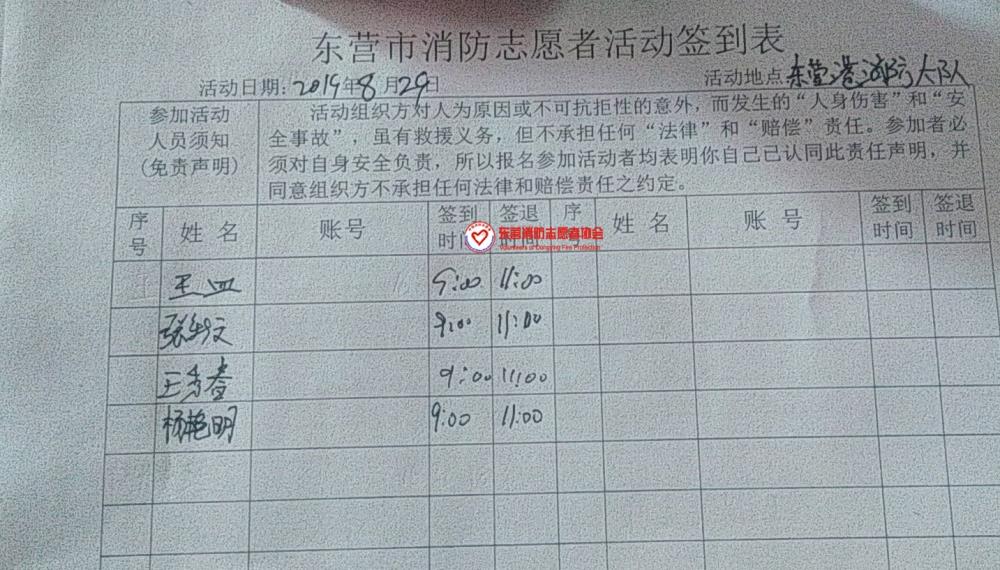 东营市消防志愿者活动签到表
活动日期:2019年8月29日 活动地点:东营港消防大队
参加活动人员须知(免责声明)
活动组织方对人为原因或不可抗拒性的意外,而发生的“人身伤害”和“安
全事故”,虽有救援义务,但不承担任何“法律”和“赔偿”责任。参加者必
须对自身安全负责,所以报名参加活动者均表明你自己已认同此责任声明,并
同意组织方不承担任何法律和赔偿责任之约定。
序号 姓名 账号 签到时间 签退时间 序 姓名 账号 签到时间 签退时间
东营消防志愿者协会
Volunteers of Dongying Fire Protection
王 9:00 11:00
张 9:00 11:00
王秀春 9:00 11:00
杨艳明 9:00 11:00